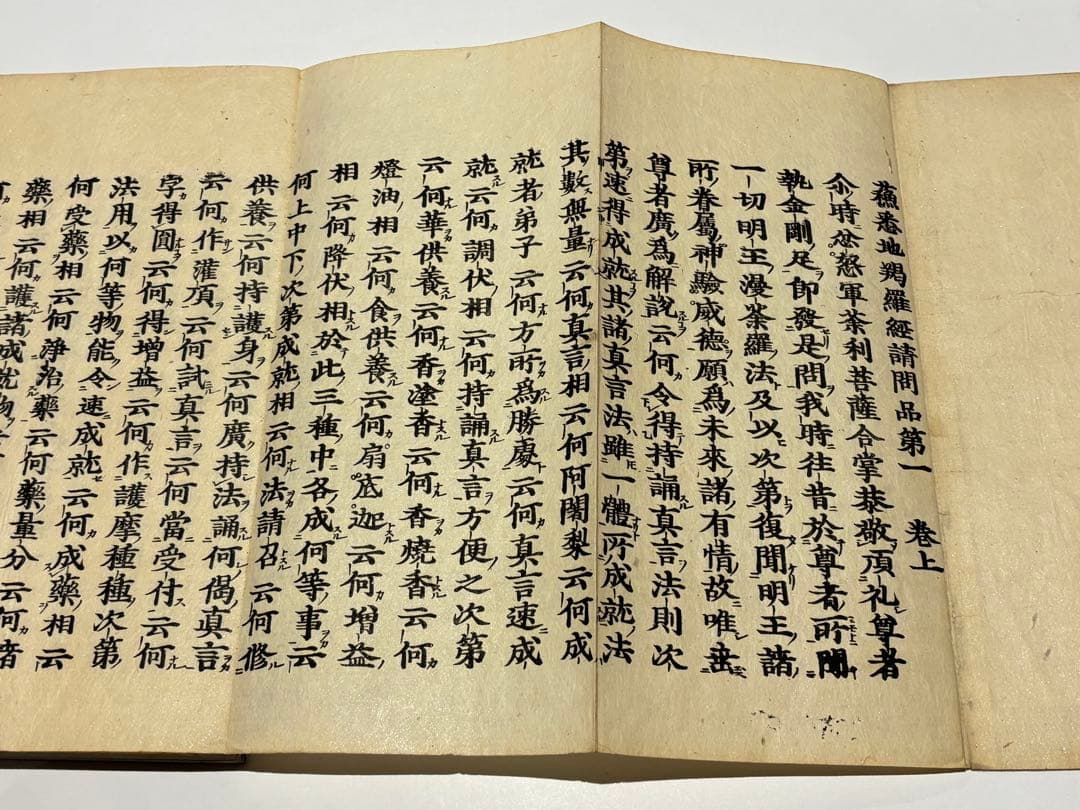 蘇悉地羯羅經請問品第一 卷上
尒時忿怒軍荼利菩薩合掌恭敬頂礼尊者
執金剛足即發是問我時往昔於尊者所聞
一切明王漫荼羅法及以次第復聞明王諸
所眷屬神驗威德願為未來諸有情故唯垂
尊者廣為解說云何令得持誦真言法則次
第速得成就其諸真言法雖一體所成就法
其數無量云何真言相云何阿闍梨云何成
就者弟子云何方所為勝處云何真言速成
就云何調伏相云何持誦真言方便之次第
云何華供養云何香塗香云何香燒香云何
燈油相云何食供養云何扇底迦云何增益
相云何降伏相於此三種中各成何等事云
何上中下次第成就相云何法請召云何修
供養云何持護身云何廣持法誦何偈真言
云何作灌頂云何試真言云何當受付云何
字得圓云何得增益云何作護摩種種次第
法用以何等物能令速成就云何成藥相云
何受藥相云何淨治藥云何藥量分云何者
藥相云何護諸成就物云